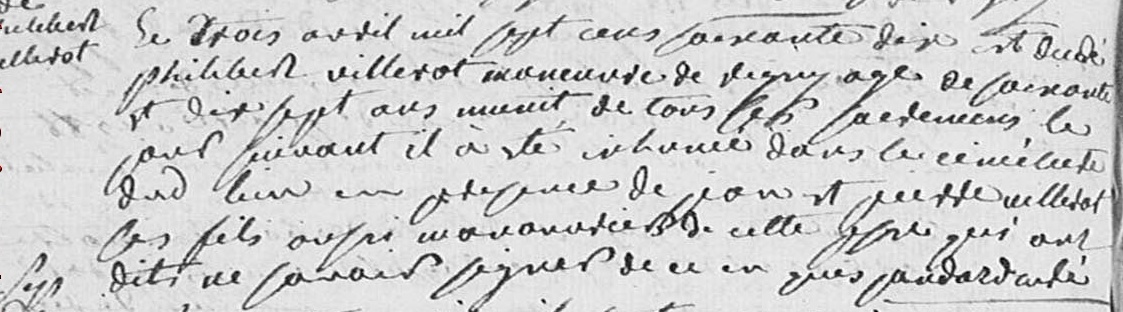 philibert
villerot
Le trois avril mil sept cens soixante dix est decedé
philibert villerot maneuvre de regny agé de soixante
et dix sept ans munit de tous ses sacremens le
jour suivant il à eté inhumé dans le cimetiere
dud lieu en presence de jean et pierre villerot
ses fils aussi manouvriers de cette psse qui ont
dits ne savoir signer de ce en quis